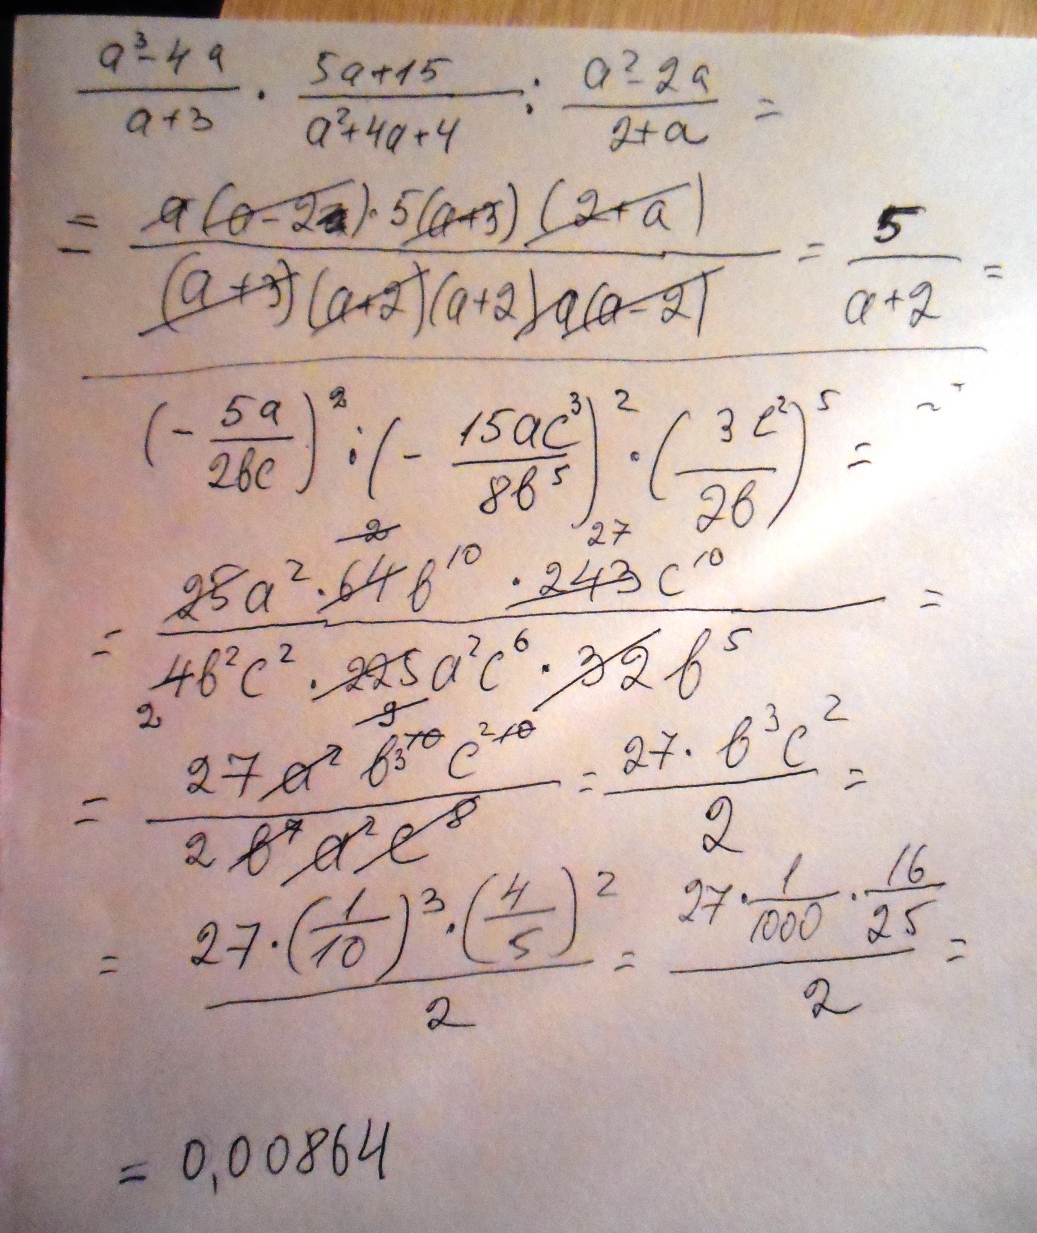 (a³-4a)/(a+3) · (5a+15)/(a²+4a+4) : (a²-2a)/(2+a) =
= (a(a-2)·5(a+3)(2+a))/((a+3)(a+2)(a+2)a(a-2)) = 5/(a+2) =
(-5a/2bc)² : (-15ac³/8b⁵)² · (3c²/2b)⁵ =
2 27
= (25a²·64b¹⁰·243c¹⁰)/(4b²c²·225a²c⁶·32b⁵) =
2 9
= (27a²b³¹⁰c²¹⁰)/(2b⁷a²c⁸) = (27·b³c²)/2 =
= (27·(1/10)³·(4/5)²)/2 = (27·1/1000·16/25)/2 =
= 0,00864